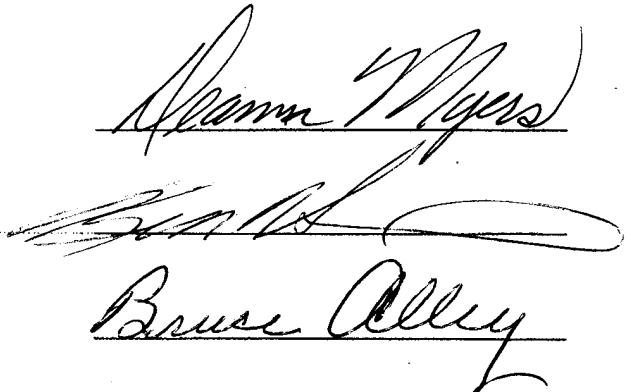 Deann Myers
Ken
Bruce Alley